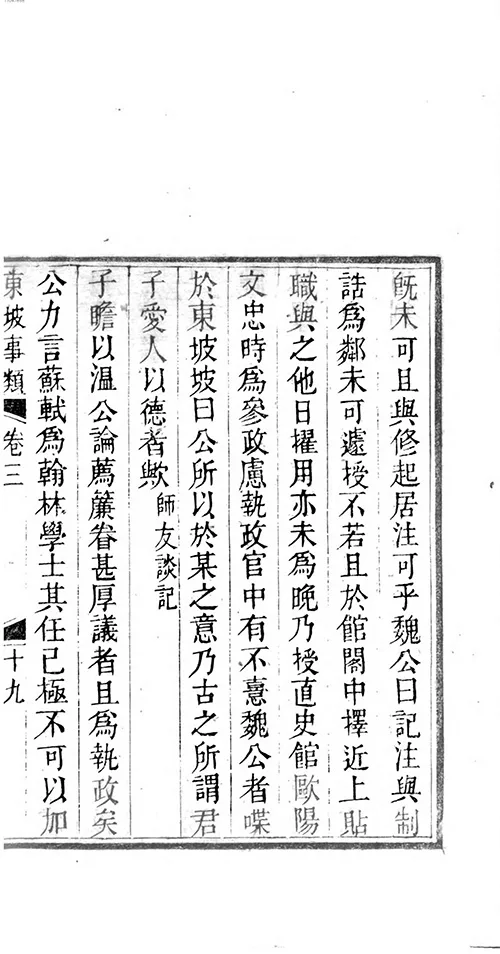 旣未可且與修起居注可乎魏公曰記注與制
誥爲鄰未可遽授不若且於館閣中擇近上貼
職與之他日擢用亦未爲晚乃授直史館歐陽
文忠時爲參政慮執政官中有不憙魏公者喋
於東坡坡曰公所以於某之意乃古之所謂君
子愛人以德者歟師友談記
子瞻以温公論薦簾眷甚厚議者且爲執政矣
公力言蘇軾爲翰林學士其任已極不可以加
東坡事類 卷三 十九